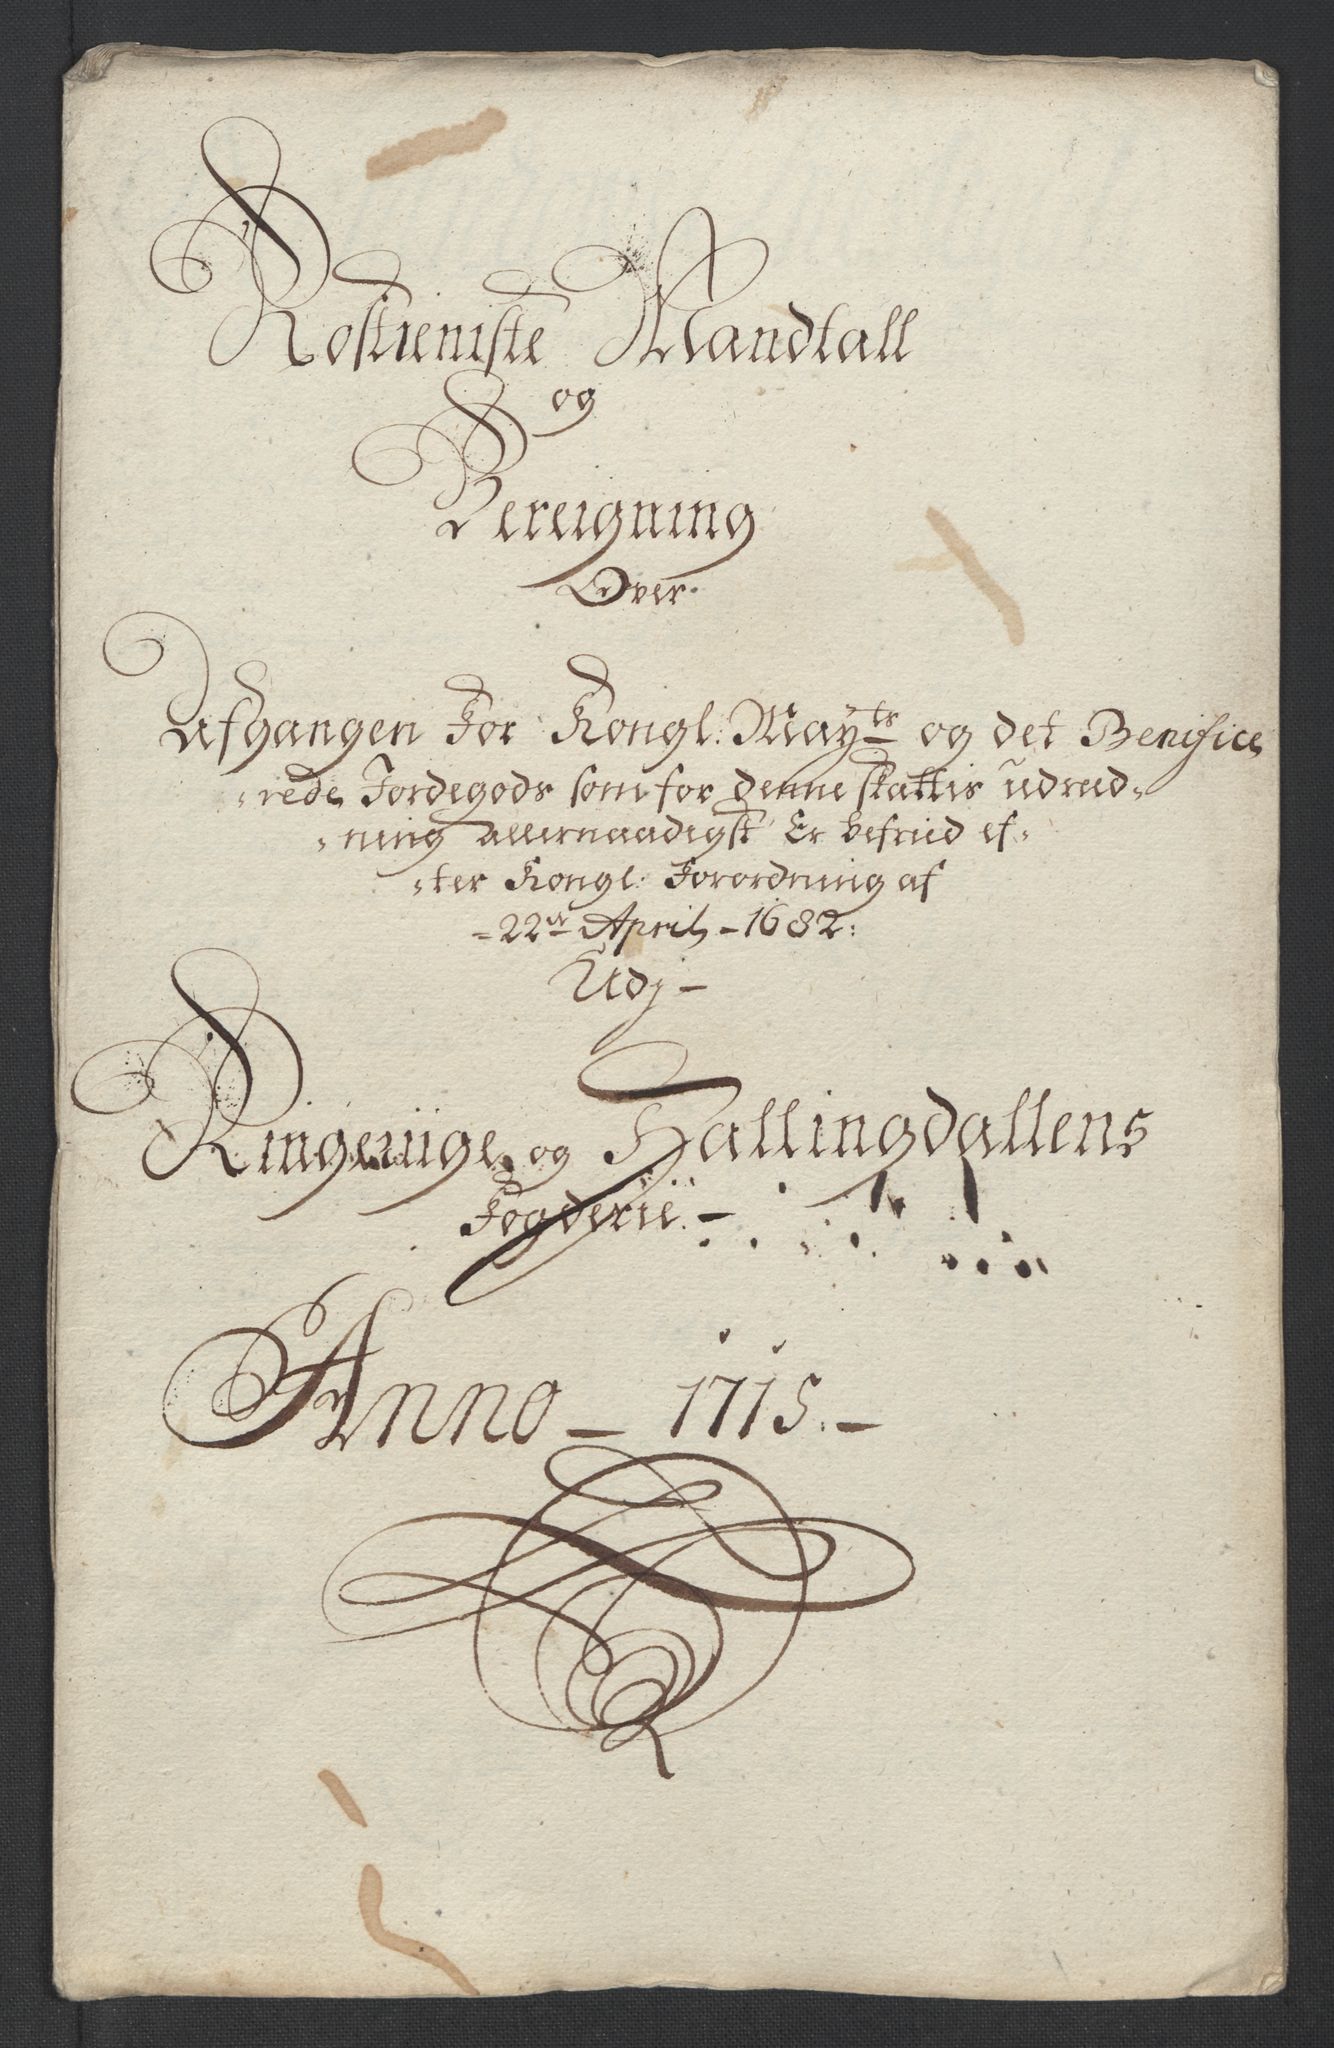 Rostieniste Mandtall
og
Bereigning
Over
Afgangen For Kongl: Mayts og det Benifice
rede Jordegods som for denne skattis udred-
ning allernaadigst Er befried ef-
ter Kongl: Forordning af
- 22de April - 1682:
Udj -
Ringeriige og Hallingdallens
Fogderie. -
Anno - 1715. -